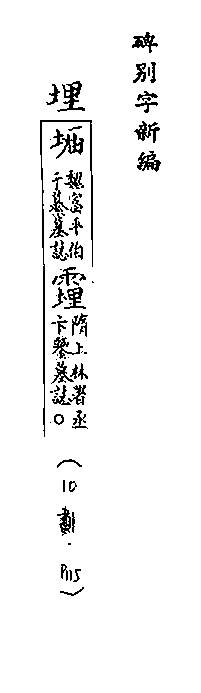 碑別字新編
埋
魏富平伯
于纂墓誌
隋上林署丞
卞鑒墓誌○
(10畫.P115)